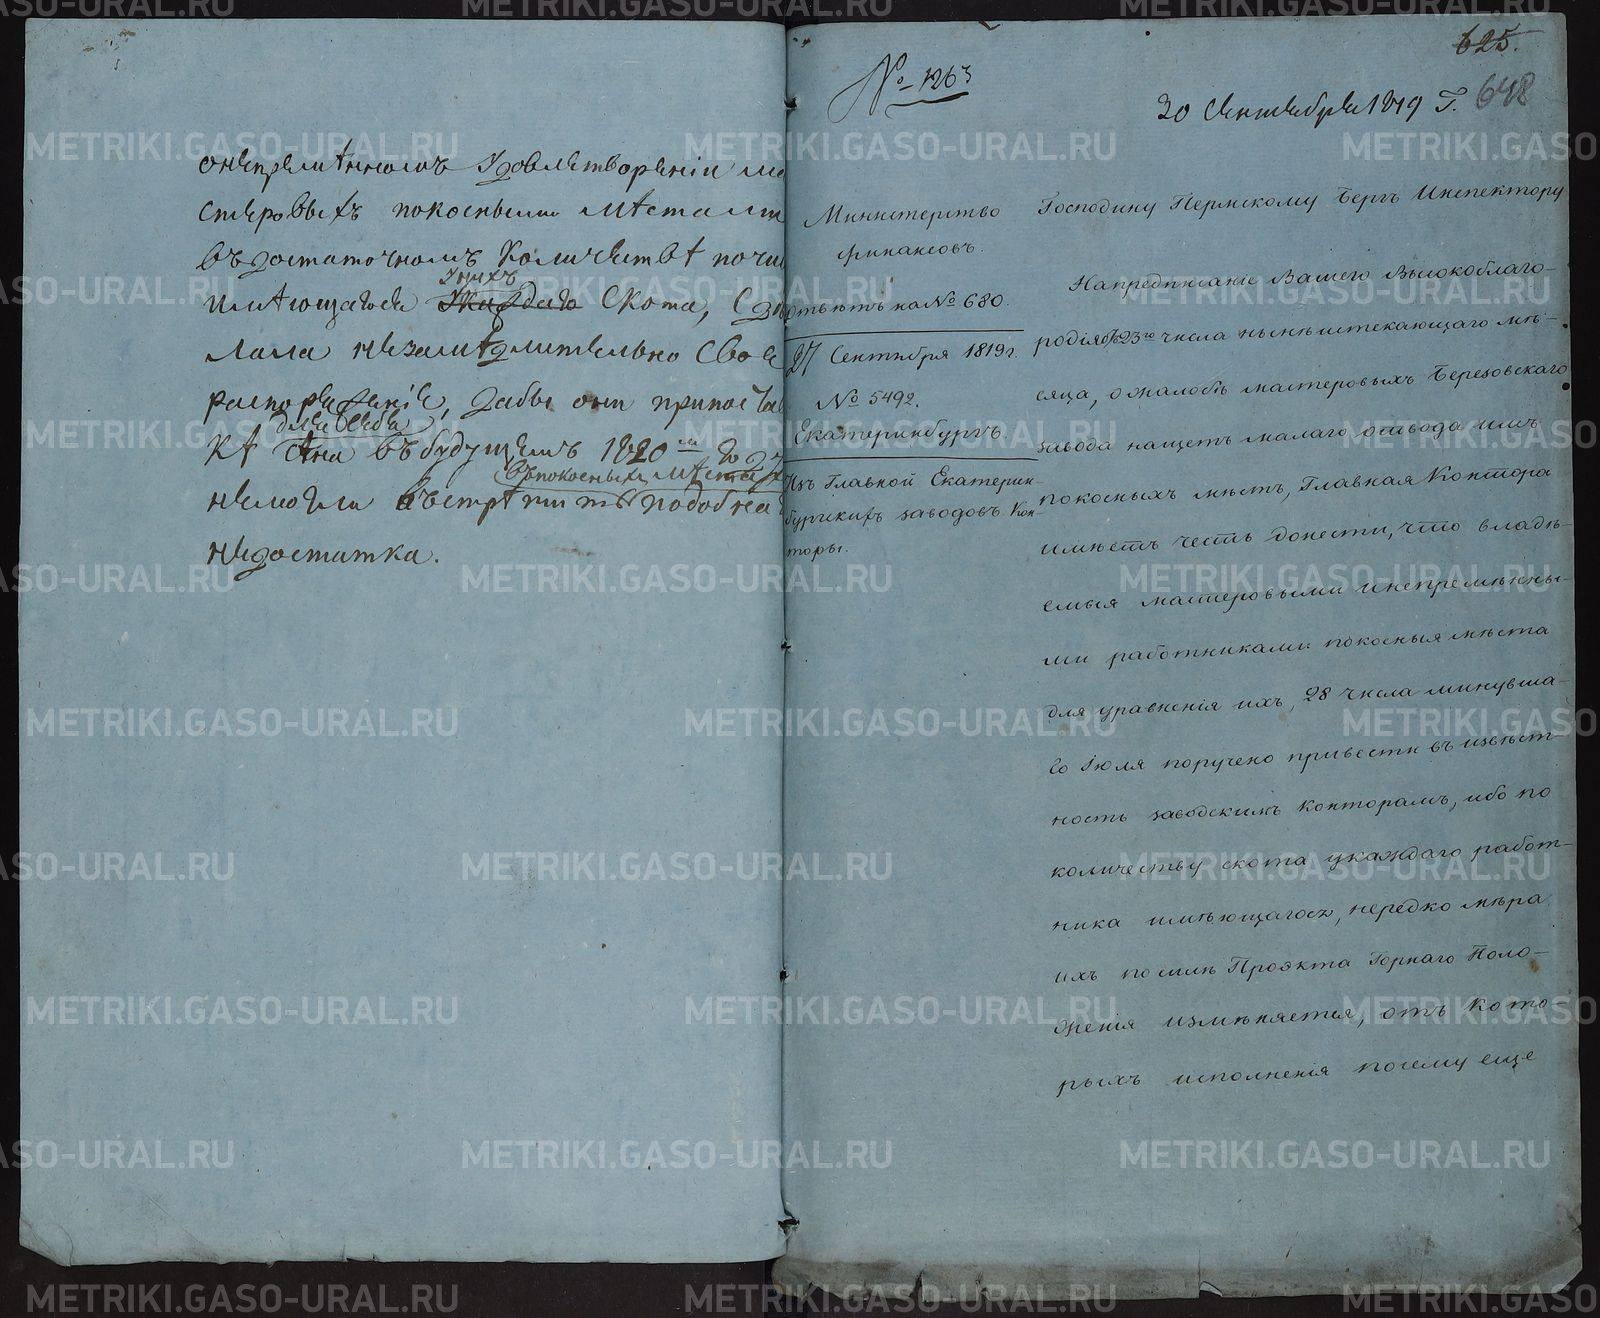 онепремѣнномъ удовлетвореніи ма
стеровыхъ покосными мѣстами
въ достаточномъ количествѣ почис
унихъ
имѣющагося скота, сдѣ
лала незамѣдлительно свое
распоряженіе, дабы они припоста
для себя
кѣ сѣна въ будущемъ 1820 м году
въ покосныхъ мѣстахъ
немогли встрѣтить подобнаго
недостатка.
№ 1263
625.
648
30 Сентября 1819 Г.
Министерство
финансовъ.
Отвѣтъ на № 680.
27 Сентября 1819 г.
№ 5492.
Екатеринбургъ.
Изъ Главной Екатерин-
бургскихъ заводовъ Кон-
торы.
Господину Пермскому Бергъ Инспектору
Напредписаніе Вашего Высокоблаго-
родія отъ 23го числа нынѣ истекающаго мѣ-
сяца, о жалобѣ мастеровыхъ Березовскаго
завода нащетъ малаго отвода имъ
покосныхъ мѣстъ, Главная Контора
имѣетъ честь донести, что владѣ-
емыя мастеровыми инепремѣнны-
ми работниками покосныя мѣста
для уравненія ихъ, 28 числа минувша-
го Іюля поручено привести въ извѣст-
ность заводскимъ конторамъ, ибо по
количеству скота укаждаго работ-
ника имѣющагося, нередко мѣра
ихъ по силѣ Проэкта Горнаго Поло-
женія измѣняется, отъ кото-
рыхъ исполненія посему еще
METRIKI.GASO-URAL.RU